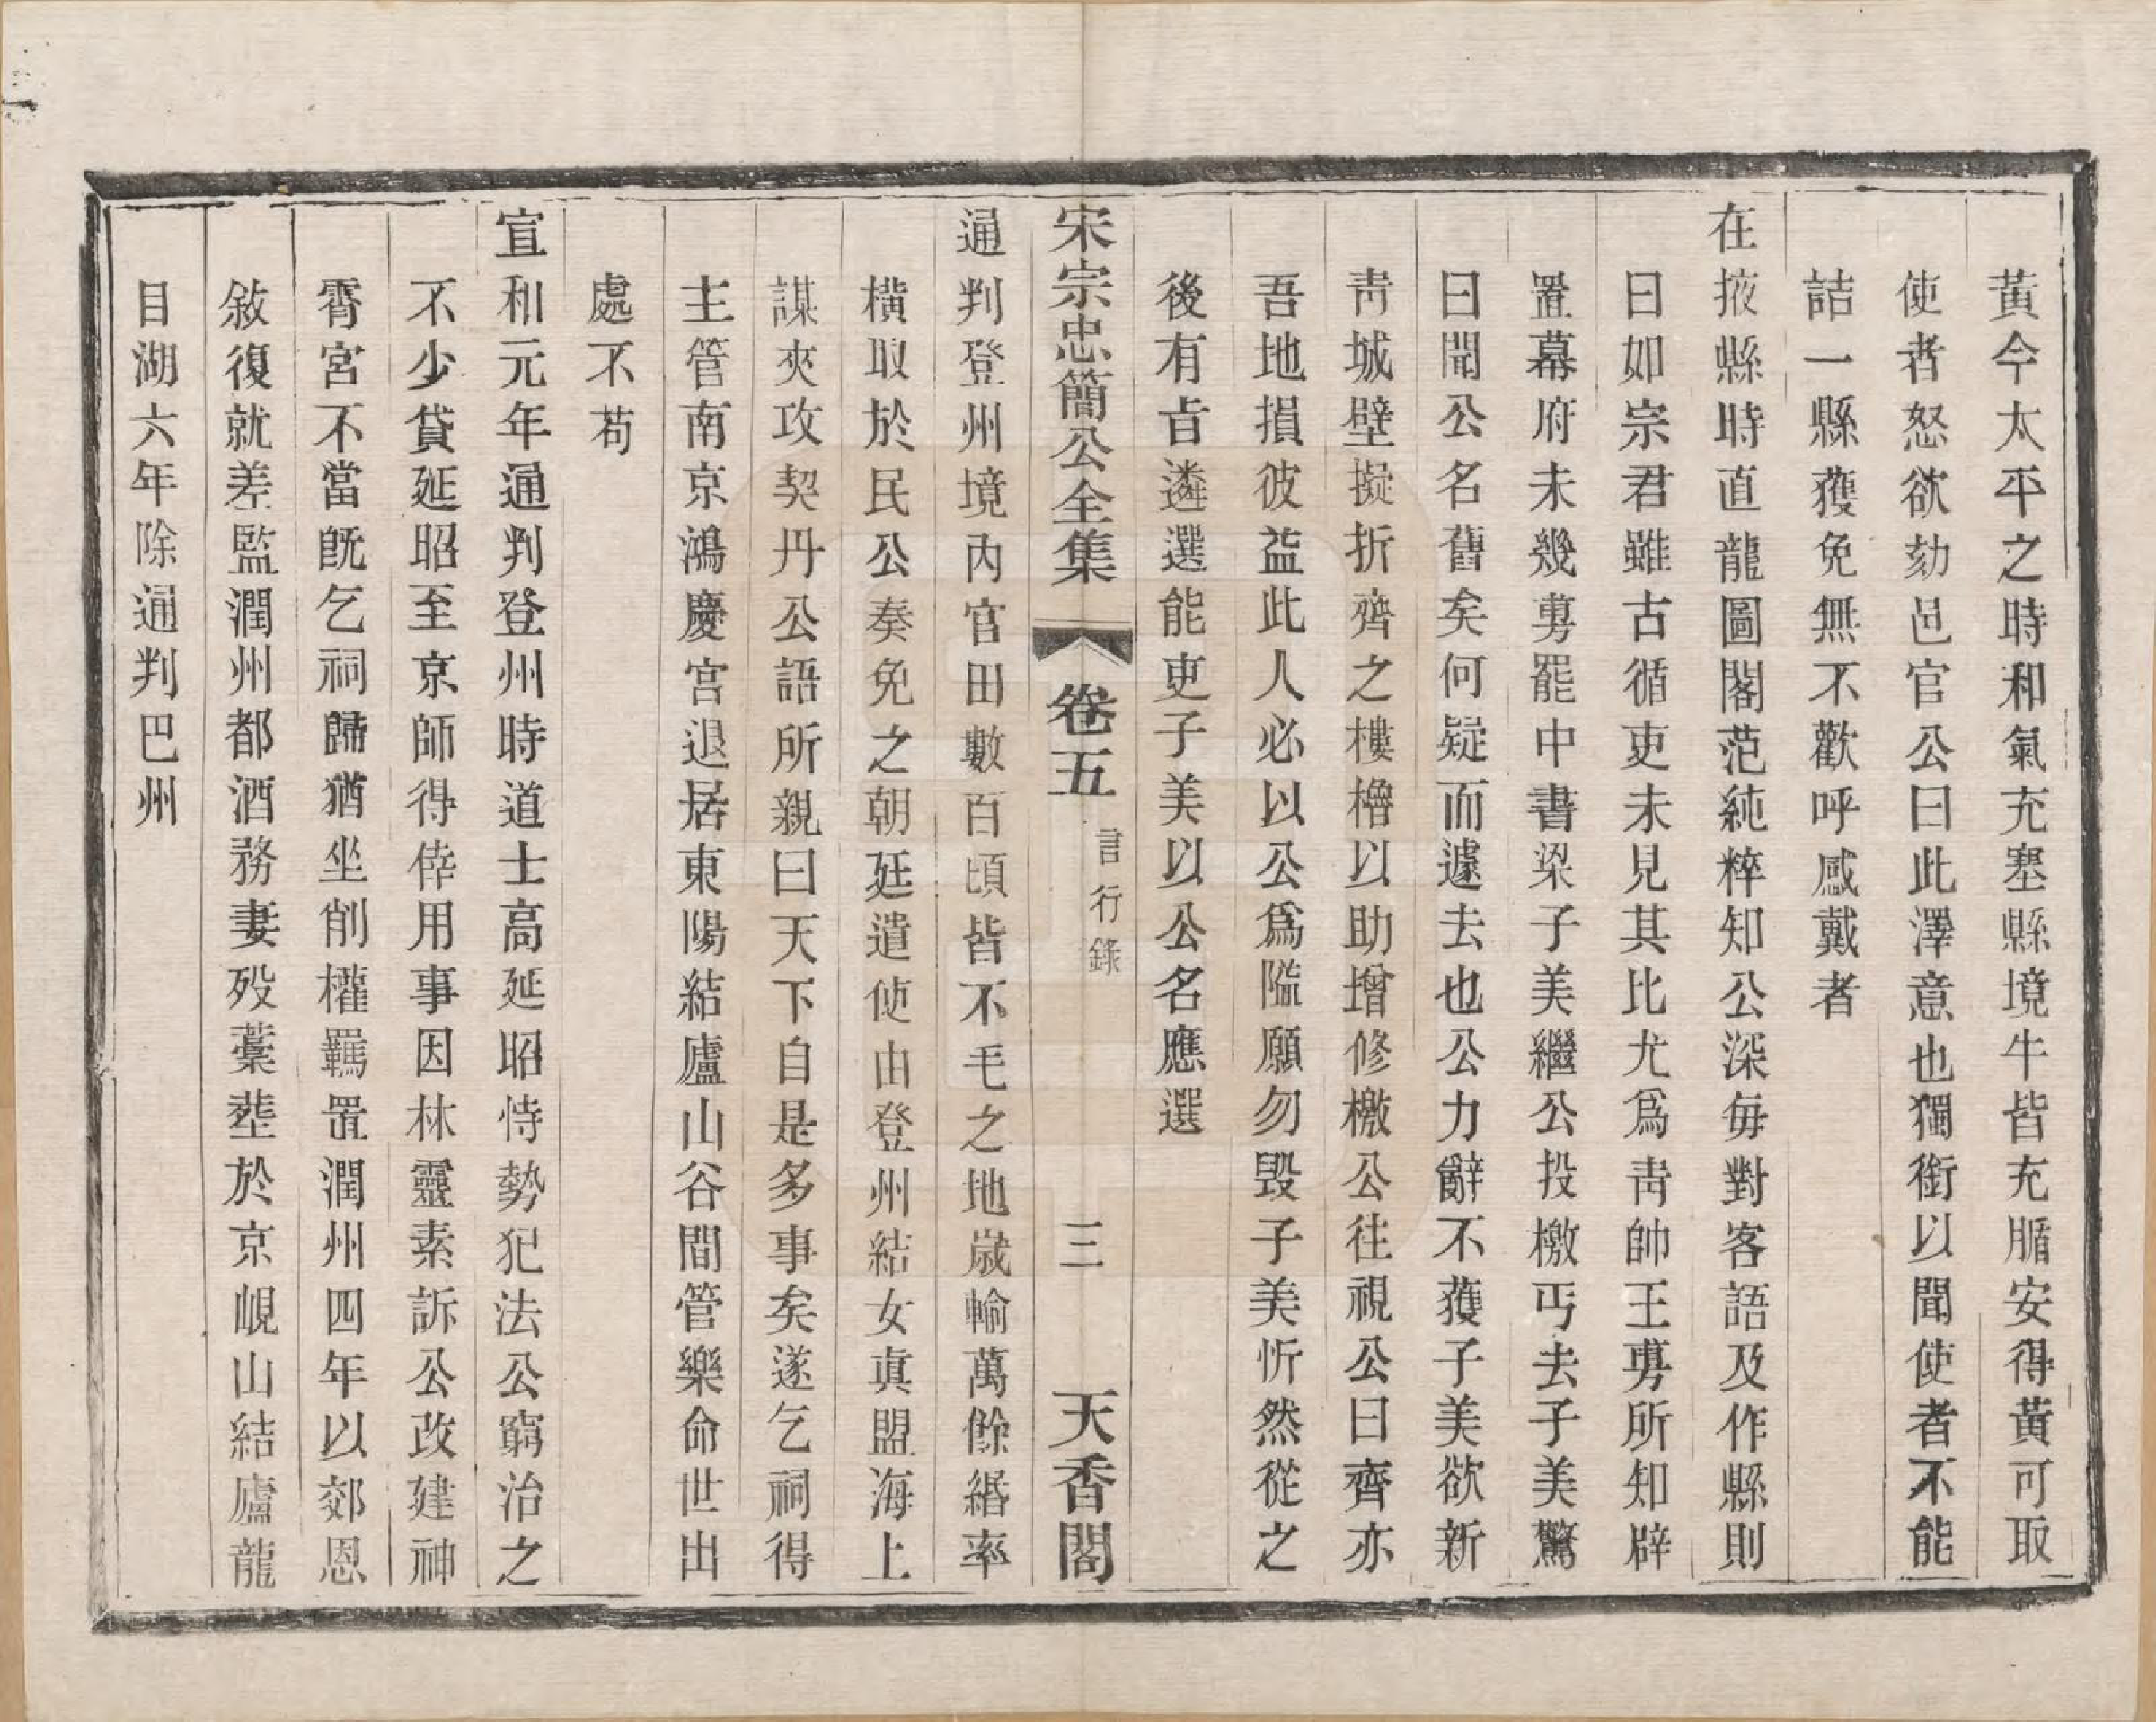 黃今太平之時和氣充塞縣境牛皆充腯安得黃可取
使者怒欲劾邑官公曰此澤意也獨銜以聞使者不能
詰一縣獲免無不歡呼感戴者
在掖縣時直龍圖閣范純粹知公深每對客語及作縣則
曰如宗君雖古循吏未見其比尤爲靑帥王雱所知辟
置幕府未幾雱罷中書梁子美繼公投檄丐去子美驚
曰聞公名舊矣何疑而遽去也公力辭不獲子美欲新
靑城壁擬折齊之樓櫓以助增修檄公往視公曰齊亦
吾地損彼益此人必以公爲隘願勿毀子美忻然從之
後有旨遴選能吏子美以公名應選
宋宗忠簡公全集 卷五 言行錄 三 天香閣
通判登州境內官田數百頃皆不毛之地歲輸萬餘緡率
橫取於民公奏免之朝廷遣使由登州結女眞盟海上
謀夾攻契丹公語所親曰天下自是多事矣遂乞祠得
主管南京鴻慶宮退居東陽結廬山谷間管樂命世出
處不苟
宣和元年通判登州時道士高延昭恃勢犯法公窮治之
不少貸延昭至京師得倖用事因林靈素訴公改建神
霄宮不當旣乞祠歸猶坐削權羈置潤州四年以郊恩
敘復就差監潤州都酒務妻歿藁塟於京峴山結廬龍
目湖六年除通判巴州